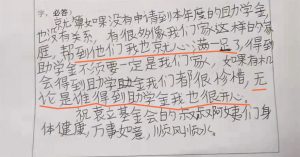 字。必答)
就算如果没有申请到本年度的助学金,
也没有关系,有很多像我们家这样的家
庭,帮到他们我也就心满一足了,得到
助学金不须要一定是我们家,如果有机
会得到助学助金我们都很珍惜,无
论是谁得到助学金我也很开心。
祝 立基金会的叔叔阿姨们身
体健康,万事如意,顺风顺水。